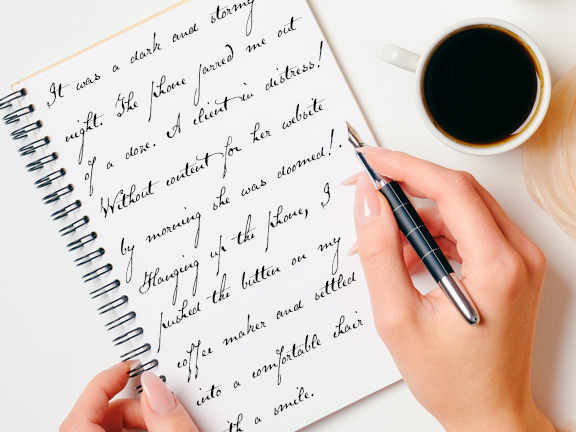 It was a dark and stormy
night. The phone jarred me out
of a doze. A client in distress!
Without content for her website
by morning she was doomed!.
Hanging up the phone, I
pushed the button on my
coffee maker and settled
into a comfortable chair
a smile.